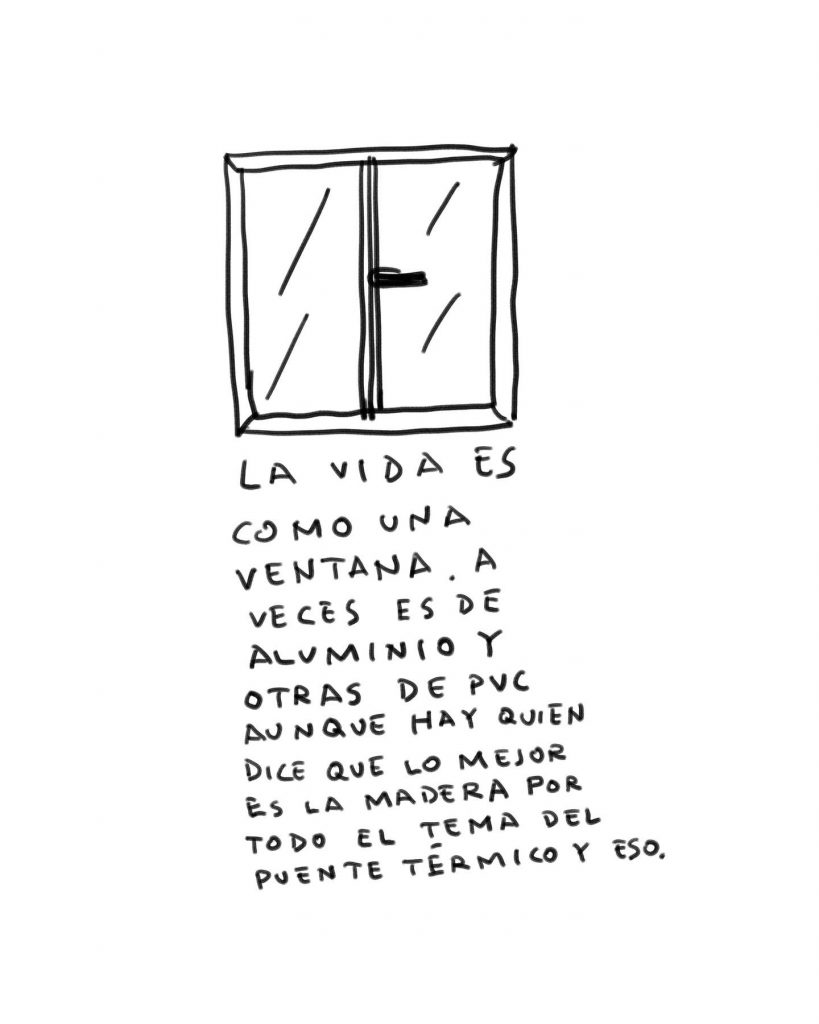 LA VIDA ES
COMO UNA
VENTANA. A
VECES ES DE
ALUMINIO Y
OTRAS DE PVC
AUNQUE HAY QUIEN
DICE QUE LO MEJOR
ES LA MADERA POR
TODO EL TEMA DEL
PUENTE TÉRMICO Y ESO.